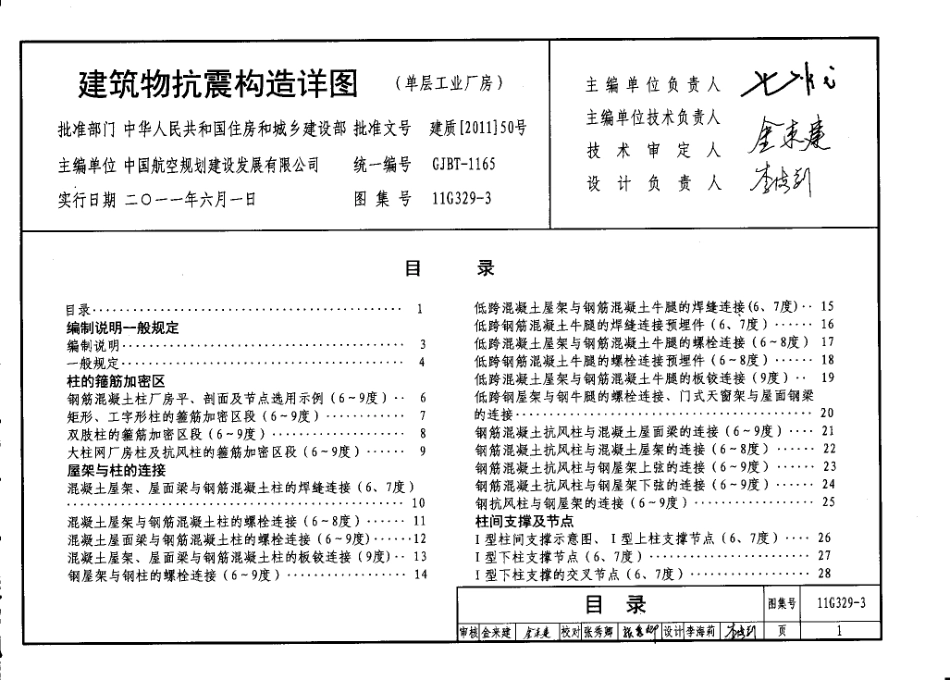 建筑物抗震构造详图 (单层工业厂房)
批准部门 中华人民共和国住房和城乡建设部 批准文号 建质[2011]50号
主编单位 中国航空规划建设发展有限公司 统一编号 GJBT-1165
实行日期 二〇一一年六月一日 图集号 11G329-3
主编单位负责人
主编单位技术负责人
技术审定人
设计负责人
目 录
目录 1
编制说明一般规定
编制说明 3
一般规定 4
柱的箍筋加密区
钢筋混凝土柱厂房平、剖面及节点选用示例(6~9度) 6
矩形、工字形柱的箍筋加密区段(6~9度) 7
双肢柱的箍筋加密区段(6~9度) 8
大柱网厂房柱及抗风柱的箍筋加密区段(6~9度) 9
屋架与柱的连接
混凝土屋架、屋面梁与钢筋混凝土柱的焊缝连接(6、7度)
10
混凝土屋架与钢筋混凝土柱的螺栓连接(6~8度) 11
混凝土屋面梁与钢筋混凝土柱的螺栓连接(6~9度) 12
混凝土屋架、屋面梁与钢筋混凝土柱的板铰连接(9度) 13
钢屋架与钢柱的螺栓连接(6~9度) 14
低跨混凝土屋架与钢筋混凝土牛腿的焊缝连接(6、7度) 15
低跨钢筋混凝土牛腿的焊缝连接预埋件(6、7度) 16
低跨混凝土屋架与钢筋混凝土牛腿的螺栓连接(6~8度) 17
低跨钢筋混凝土牛腿的螺栓连接预埋件(6~8度) 18
低跨混凝土屋架与钢筋混凝土牛腿的板铰连接(9度) 19
低跨钢屋架与钢牛腿的螺栓连接、门式天窗架与屋面钢梁
的连接 20
钢筋混凝土抗风柱与混凝土屋面梁的连接(6~9度) 21
钢筋混凝土抗风柱与混凝土屋架的连接(6~8度) 22
钢筋混凝土抗风柱与钢屋架上弦的连接(6~9度) 23
钢筋混凝土抗风柱与钢屋架下弦的连接(6~9度) 24
钢抗风柱与钢屋架的连接(6~9度) 25
柱间支撑及节点
I型柱间支撑示意图、I型上柱支撑节点(6、7度) 26
I型下柱支撑节点(6、7度) 27
I型下柱支撑的交叉节点(6、7度) 28
目 录 图集号 11G329-3
审核 金来建 金来建 校对 张秀卿 设计 李海莉 页 1